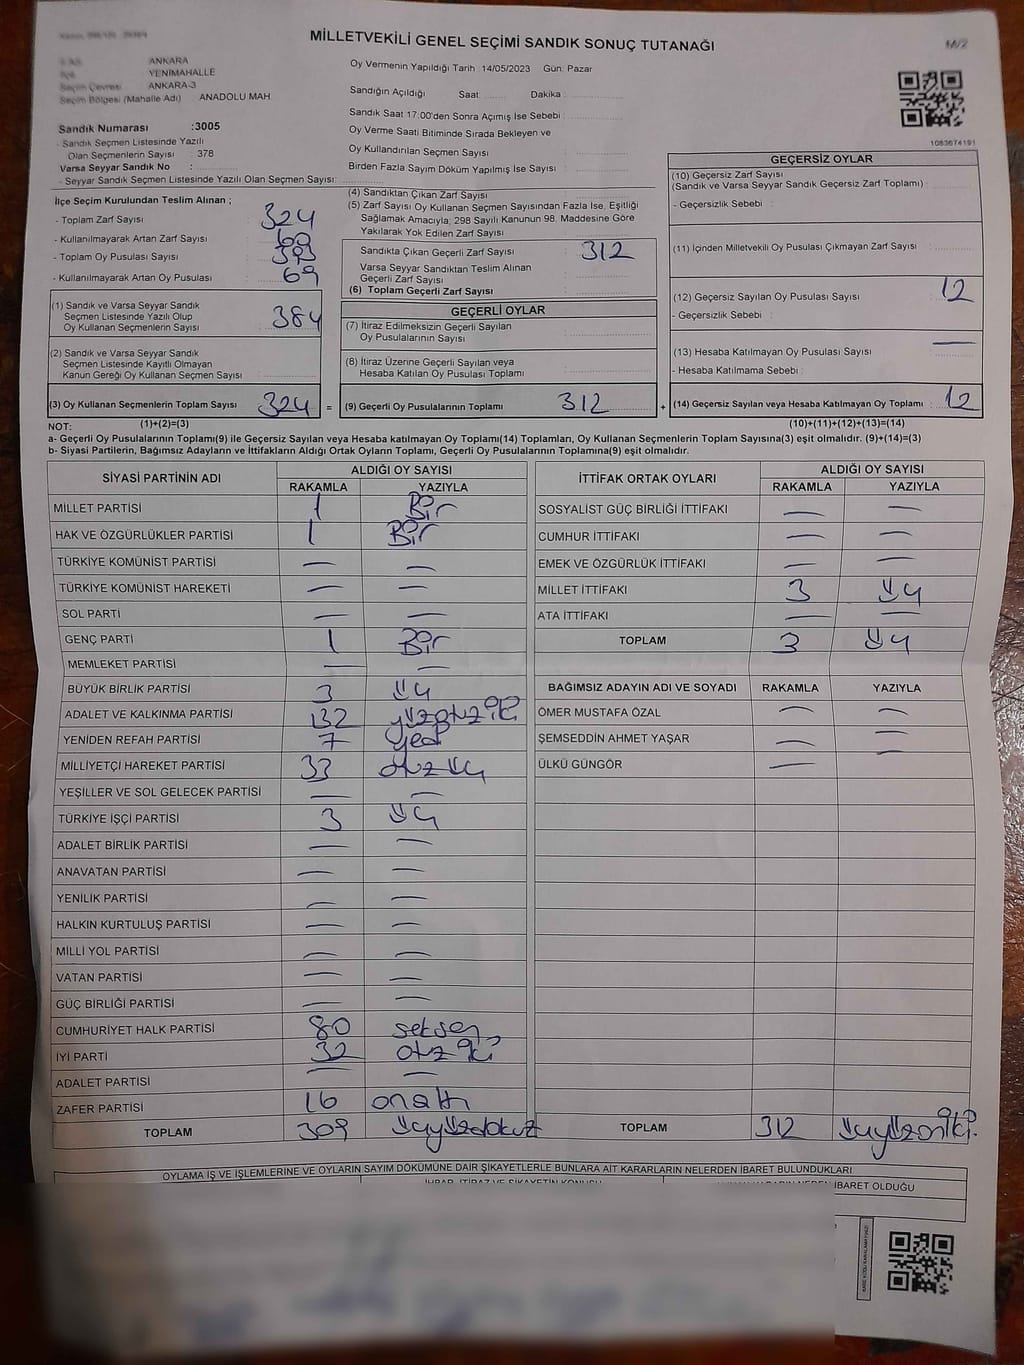 MİLLETVEKİLİ GENEL SEÇİMİ SANDIK SONUÇ TUTANAĞI
M/2
ANKARA
YENİMAHALLE
Seçim Çevresi ANKARA-3
Seçim Bölgesi (Mahalle Adı) ANADOLU MAH
Sandık Numarası :3005
- Sandık Seçmen Listesinde Yazılı
Olan Seçmenlerin Sayısı : 378
Varsa Seyyar Sandık No :
- Seyyar Sandık Seçmen Listesinde Yazılı Olan Seçmen Sayısı:
Oy Vermenin Yapıldığı Tarih : 14/05/2023 Gün: Pazar
Sandığın Açıldığı Saat: Dakika :
Sandık Saat 17:00'den Sonra Açımış İse Sebebi :
Oy Verme Saati Bitiminde Sırada Bekleyen ve
Oy Kullandırılan Seçmen Sayısı
Birden Fazla Sayım Döküm Yapılmış İse Sayısı :
1083674191
İlçe Seçim Kurulundan Teslim Alınan ;
- Toplam Zarf Sayısı 324
- Kullanılmayarak Artan Zarf Sayısı
- Toplam Oy Pusulası Sayısı 393
- Kullanılmayarak Artan Oy Pusulası 69
(1) Sandık ve Varsa Seyyar Sandık
Seçmen Listesinde Yazılı Olup
Oy Kullanan Seçmenlerin Sayısı 384
(2) Sandık ve Varsa Seyyar Sandık
Seçmen Listesinde Kayıtlı Olmayan
Kanun Gereği Oy Kullanan Seçmen Sayısı
(3) Oy Kullanan Seçmenlerin Toplam Sayısı 324 =
(1)+(2)=(3)
(4) Sandıktan Çıkan Zarf Sayısı
(5) Zarf Sayısı Oy Kullanan Seçmen Sayısından Fazla İse, Eşitliği
Sağlamak Amacıyla; 298 Sayılı Kanunun 98. Maddesine Göre
Yakılarak Yok Edilen Zarf Sayısı
Sandıkta Çıkan Geçerli Zarf Sayısı : 312
Varsa Seyyar Sandıktan Teslim Alınan
Geçerli Zarf Sayısı
(6) Toplam Geçerli Zarf Sayısı
GEÇERLİ OYLAR
(7) İtiraz Edilmeksizin Geçerli Sayılan
Oy Pusulalarının Sayısı
(8) İtiraz Üzerine Geçerli Sayılan veya
Hesaba Katılan Oy Pusulası Toplamı
(9) Geçerli Oy Pusulalarının Toplamı 312 +
GEÇERSİZ OYLAR
(10) Geçersiz Zarf Sayısı
(Sandık ve Varsa Seyyar Sandık Geçersiz Zarf Toplamı) :
- Geçersizlik Sebebi :
(11) İçinden Milletvekili Oy Pusulası Çıkmayan Zarf Sayısı :
(12) Geçersiz Sayılan Oy Pusulası Sayısı : 12
- Geçersizlik Sebebi :
(13) Hesaba Katılmayan Oy Pusulası Sayısı : —
- Hesaba Katılmama Sebebi :
(14) Geçersiz Sayılan veya Hesaba Katılmayan Oy Toplamı : 12
(10)+(11)+(12)+(13)=(14)
NOT:
a- Geçerli Oy Pusulalarının Toplamı(9) ile Geçersiz Sayılan veya Hesaba katılmayan Oy Toplamı(14) Toplamları, Oy Kullanan Seçmenlerin Toplam Sayısına(3) eşit olmalıdır. (9)+(14)=(3)
b- Siyasi Partilerin, Bağımsız Adayların ve İttifakların Aldığı Ortak Oyların Toplamı, Geçerli Oy Pusulalarının Toplamına(9) eşit olmalıdır.
SİYASİ PARTİNİN ADI ALDIĞI OY SAYISI
RAKAMLA YAZIYLA
MİLLET PARTİSİ 1 Bir
HAK VE ÖZGÜRLÜKLER PARTİSİ 1 Bir
TÜRKİYE KOMÜNİST PARTİSİ — —
TÜRKİYE KOMÜNİST HAREKETİ — —
SOL PARTİ — —
GENÇ PARTİ 1 Bir
MEMLEKET PARTİSİ — —
BÜYÜK BİRLİK PARTİSİ 3 üç
ADALET VE KALKINMA PARTİSİ 132 yüzotuziki
YENİDEN REFAH PARTİSİ 7 yedi
MİLLİYETÇİ HAREKET PARTİSİ 33 otuz üç
YEŞİLLER VE SOL GELECEK PARTİSİ — —
TÜRKİYE İŞÇİ PARTİSİ 3 üç
ADALET BİRLİK PARTİSİ — —
ANAVATAN PARTİSİ — —
YENİLİK PARTİSİ — —
HALKIN KURTULUŞ PARTİSİ — —
MİLLİ YOL PARTİSİ — —
VATAN PARTİSİ — —
GÜÇ BİRLİĞİ PARTİSİ — —
CUMHURİYET HALK PARTİSİ 80 seksen
İYİ PARTİ 32 otuz iki
ADALET PARTİSİ — —
ZAFER PARTİSİ 16 onaltı
TOPLAM 309 üçyüzdokuz
İTTİFAK ORTAK OYLARI ALDIĞI OY SAYISI
RAKAMLA YAZIYLA
SOSYALİST GÜÇ BİRLİĞİ İTTİFAKI — —
CUMHUR İTTİFAKI — —
EMEK VE ÖZGÜRLÜK İTTİFAKI — —
MİLLET İTTİFAKI 3 üç
ATA İTTİFAKI — —
TOPLAM 3 üç
BAĞIMSIZ ADAYIN ADI VE SOYADI RAKAMLA YAZIYLA
ÖMER MUSTAFA ÖZAL — —
ŞEMSEDDİN AHMET YAŞAR — —
ÜLKÜ GÜNGÖR — —
TOPLAM 312 üçyüzoniki.
OYLAMA İŞ VE İŞLEMLERİNE VE OYLARIN SAYIM DÖKÜMÜNE DAİR ŞİKAYETLERLE BUNLARA AİT KARARLARIN NELERDEN İBARET BULUNDUKLARI
İHBAR, İTİRAZ VE ŞİKAYETİN KONUSU
İBARET OLDUĞU